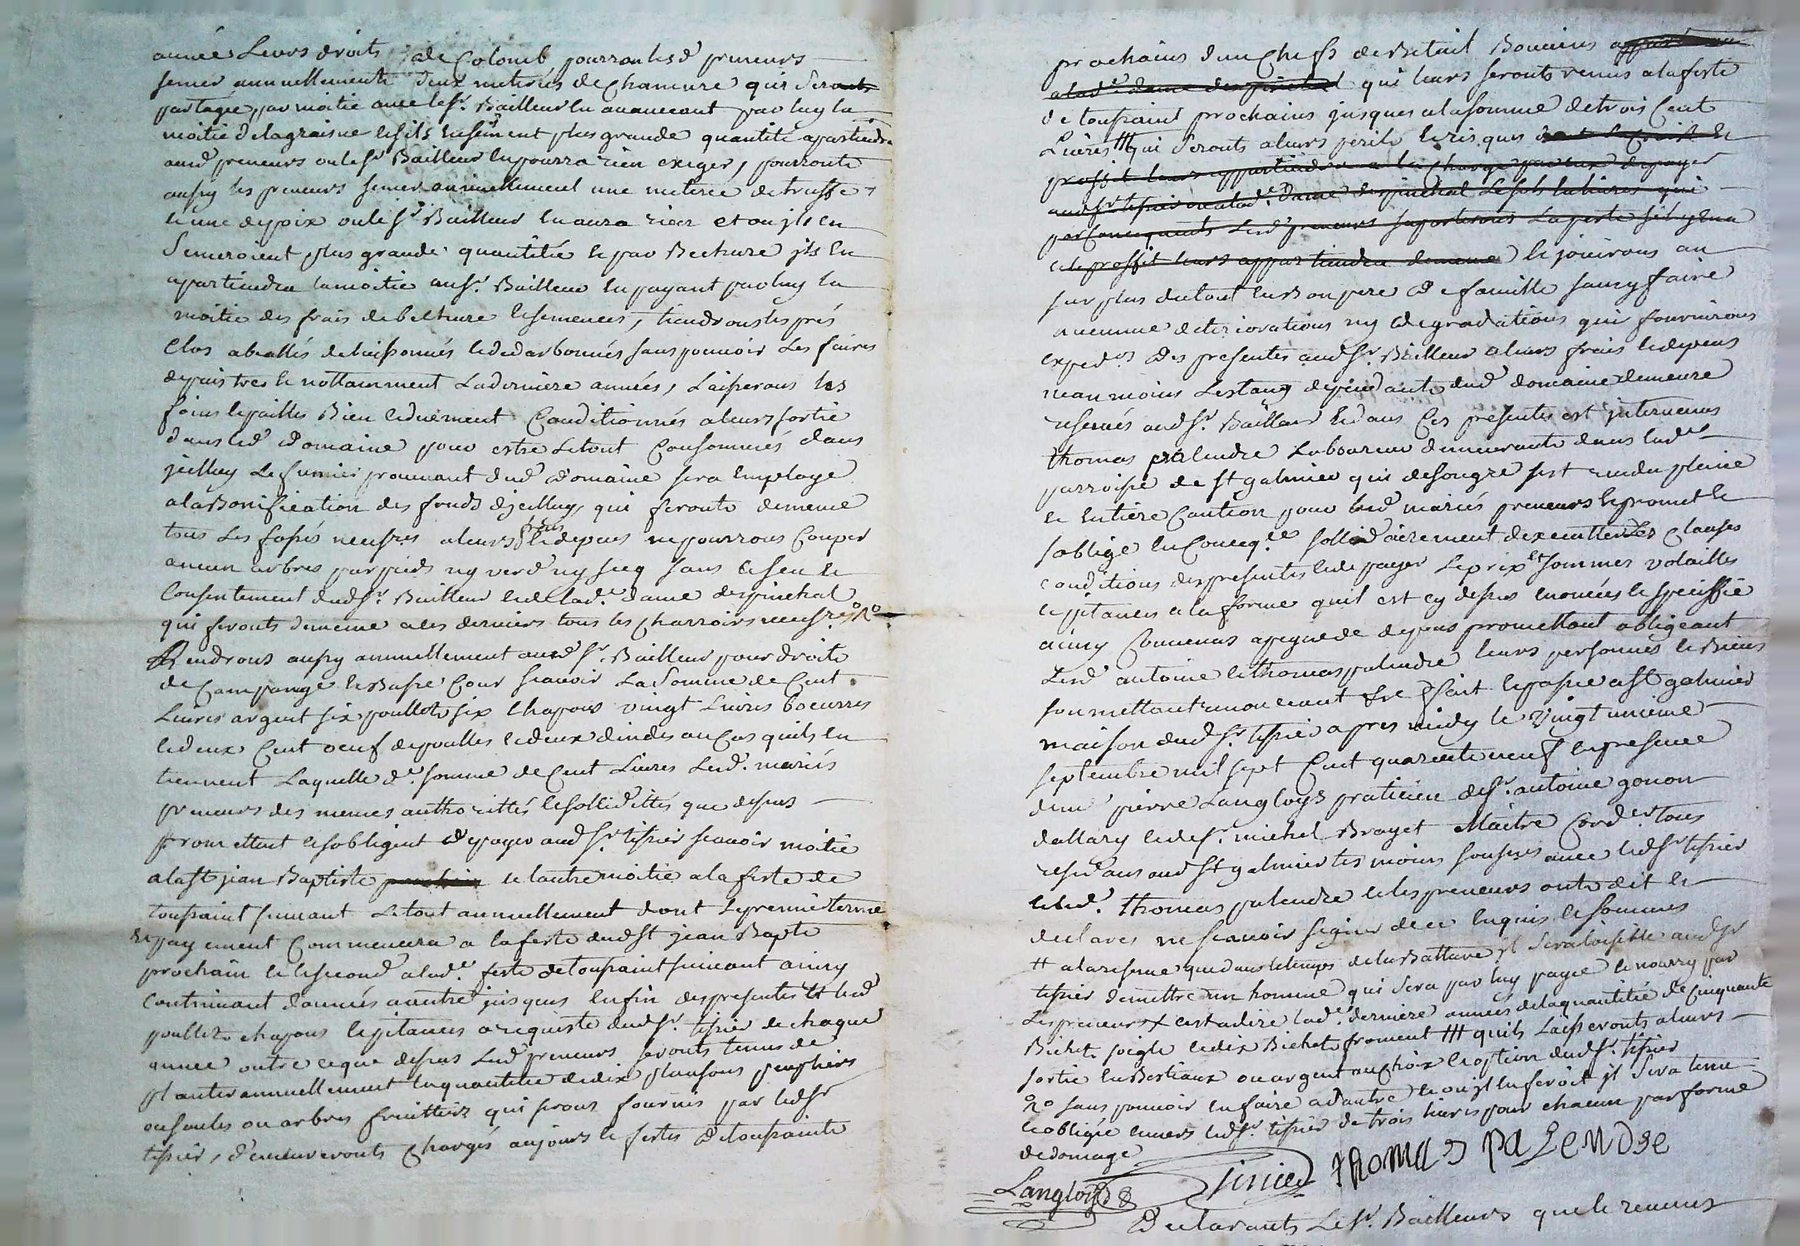 année Leurs droits de Colomb pourront lesd preneurs
semer annuellement deux meterées de chanevre qui seront
partagée par moitié avec led sr. Bailleur en avancent par luy la
moitié de la graisne et sils en sement plus grande quantité apartiendra
aud preneurs ou le sr Bailleur ny pourra rien exiger, pourronts
aussy les preneurs semer annuellement une meterée de truffe
et une de poix ou le sr Bailleur en aura rien et ou jls en
semeroient plus grande quantitée et par Becheure jls en
apartiendra la moitié au sr. Bailleur en payant par luy la
moitié des frais de becheure et semences, tiendronts les prés
Clos abeallés debuissonnés et dedarbonnés sans pouvoir Les faires
depaistres et nottamment Laderniere années, Laisserons les
foins et pailles Bien et duement Conditionnés a leurs sortie
dans led Domaine pour estre Le tout Consommés dans
jcelluy Le fumier provenant dud Domaine sera Employé
a la Bonification des fonds djcelluy, qui feronts de meme
tous Les fossés neufs a leurs frais et depens ne pourrons Couper
aucun arbres par pieds ny verd ny secq sans le sceu et
Consentement dud sr. Bailleur et de lade dame despinchal
qui feronts de meme a ces derniers tous les charroirs
Rendrons aussy annuellement aud sr. Bailleur pour droits
de Campange et Basse Cour scavoir La somme de Cent
Livres argent six poullets six chapons vingt Livres Boeurres
et deux Cent oeuf de poulles et deux dindes au Cas quils en
tiennent Laquelle de somme de Cent Livres Lesd. mariés
preneurs des memes authorittés et sollidittés que dessus
promettent et sobligent de payer aud sr. tissier scavoir moitié
a la st jean Baptiste prochain et l'autre moitié a la feste de
toussaint suivant Le tout annuellement dont Le premier terme
et payement Commencera a la feste dud st jean Bapte
prochain et le second a lade. feste de toussaint suivant ainsy
Continuant d'années a autre jusques Enfin des presentes # lesd
poullets chapons et pitances a requiste dud sr. tissier de chaque
année outre ce que dessus Lesd preneurs seronts tenus de
planter annuellement la quantitée de dix plansons peupliers
ou saules ou arbres fruittiers qui serons fournis par led sr
tissier, demeureronts Chargés aujours et festes de toussaints
prochains d'un Cheps de Betail Bovains
a lade. dame despinchal qui leurs seronts remis a la feste
de toussaint prochains jusques a la somme de trois Cent
Livres ## qui seronts a leurs perils et risques
proffit leurs appartiendra a la Charge par eux de payer
aud sr tissier ou a lade. Dame despinchal
par Consequents Lesd preneurs suporterons La perte sil y en a
et le proffit leurs appartiendra de meme et jouirons au
surplus du tout en Bon pere de famille sans y faire
aucunne deteriorations ny degradations qui fournirons
exped.ns des presentes aud sr. Bailleur a leurs frais et depens
neanmoins Lestang dependants dud domaine demeure
reservés aud sr. Bailleur et dans Ces presentes est intervenus
thomas palendre Laboureur demeurants dans lade
parroisse de st galmier qui de son gré sest rendu pleine
et entiere Caution pour lesd mariés preneurs et promet et
soblige en Conceq.ce sollidairement dexecutter Les Clauses
conditions des presentes et de payer Le prix et sommes volailles
et pitances a la forme quil est cy dessus enoncés et speciffié
ainsy Convenus a peyne de depens promettant obligeant
Lesd antoine et thomas palendre leurs personnes et Biens
soumettant renoncant &c fait et passé a st galmier
maison dud sr. tissier apres midy le vingt unieme
septembre mil sept Cent quarente neuf en presence
de me pierre Langloys praticien de sr. antoine gonon
dallary et de sr. michel Brayet Maitre Cord.er tous
residans aud st galmier tesmoins soussnes avec led sr tissier
et led. thomas palendre et les preneurs onts dit et
declarés ne scavoir signer de ce enquis et sommes
# a la reserve que dans le temps de la Batture jl sera loisible aud sr
tissier de mettre un homme qui sera par luy payée et nourry par
Les preneurs cest a dire lade. derniere années de la quantitée de cinquante
Bichets soigle et dix Bichets froment ### quils Laisseronts a leurs
sortie en Bestiaux ou argent au choix et option dud sr. tissier
sans pouvoir en faire a dautre et ou jl en feroit jl sera tenu
et obligée envers led sr. tissier de trois livres pour chacun par forme
de domage
Langloys Tissier THOMAS PALENDRE
Declarants Le sr. Bailleurs que le revenus